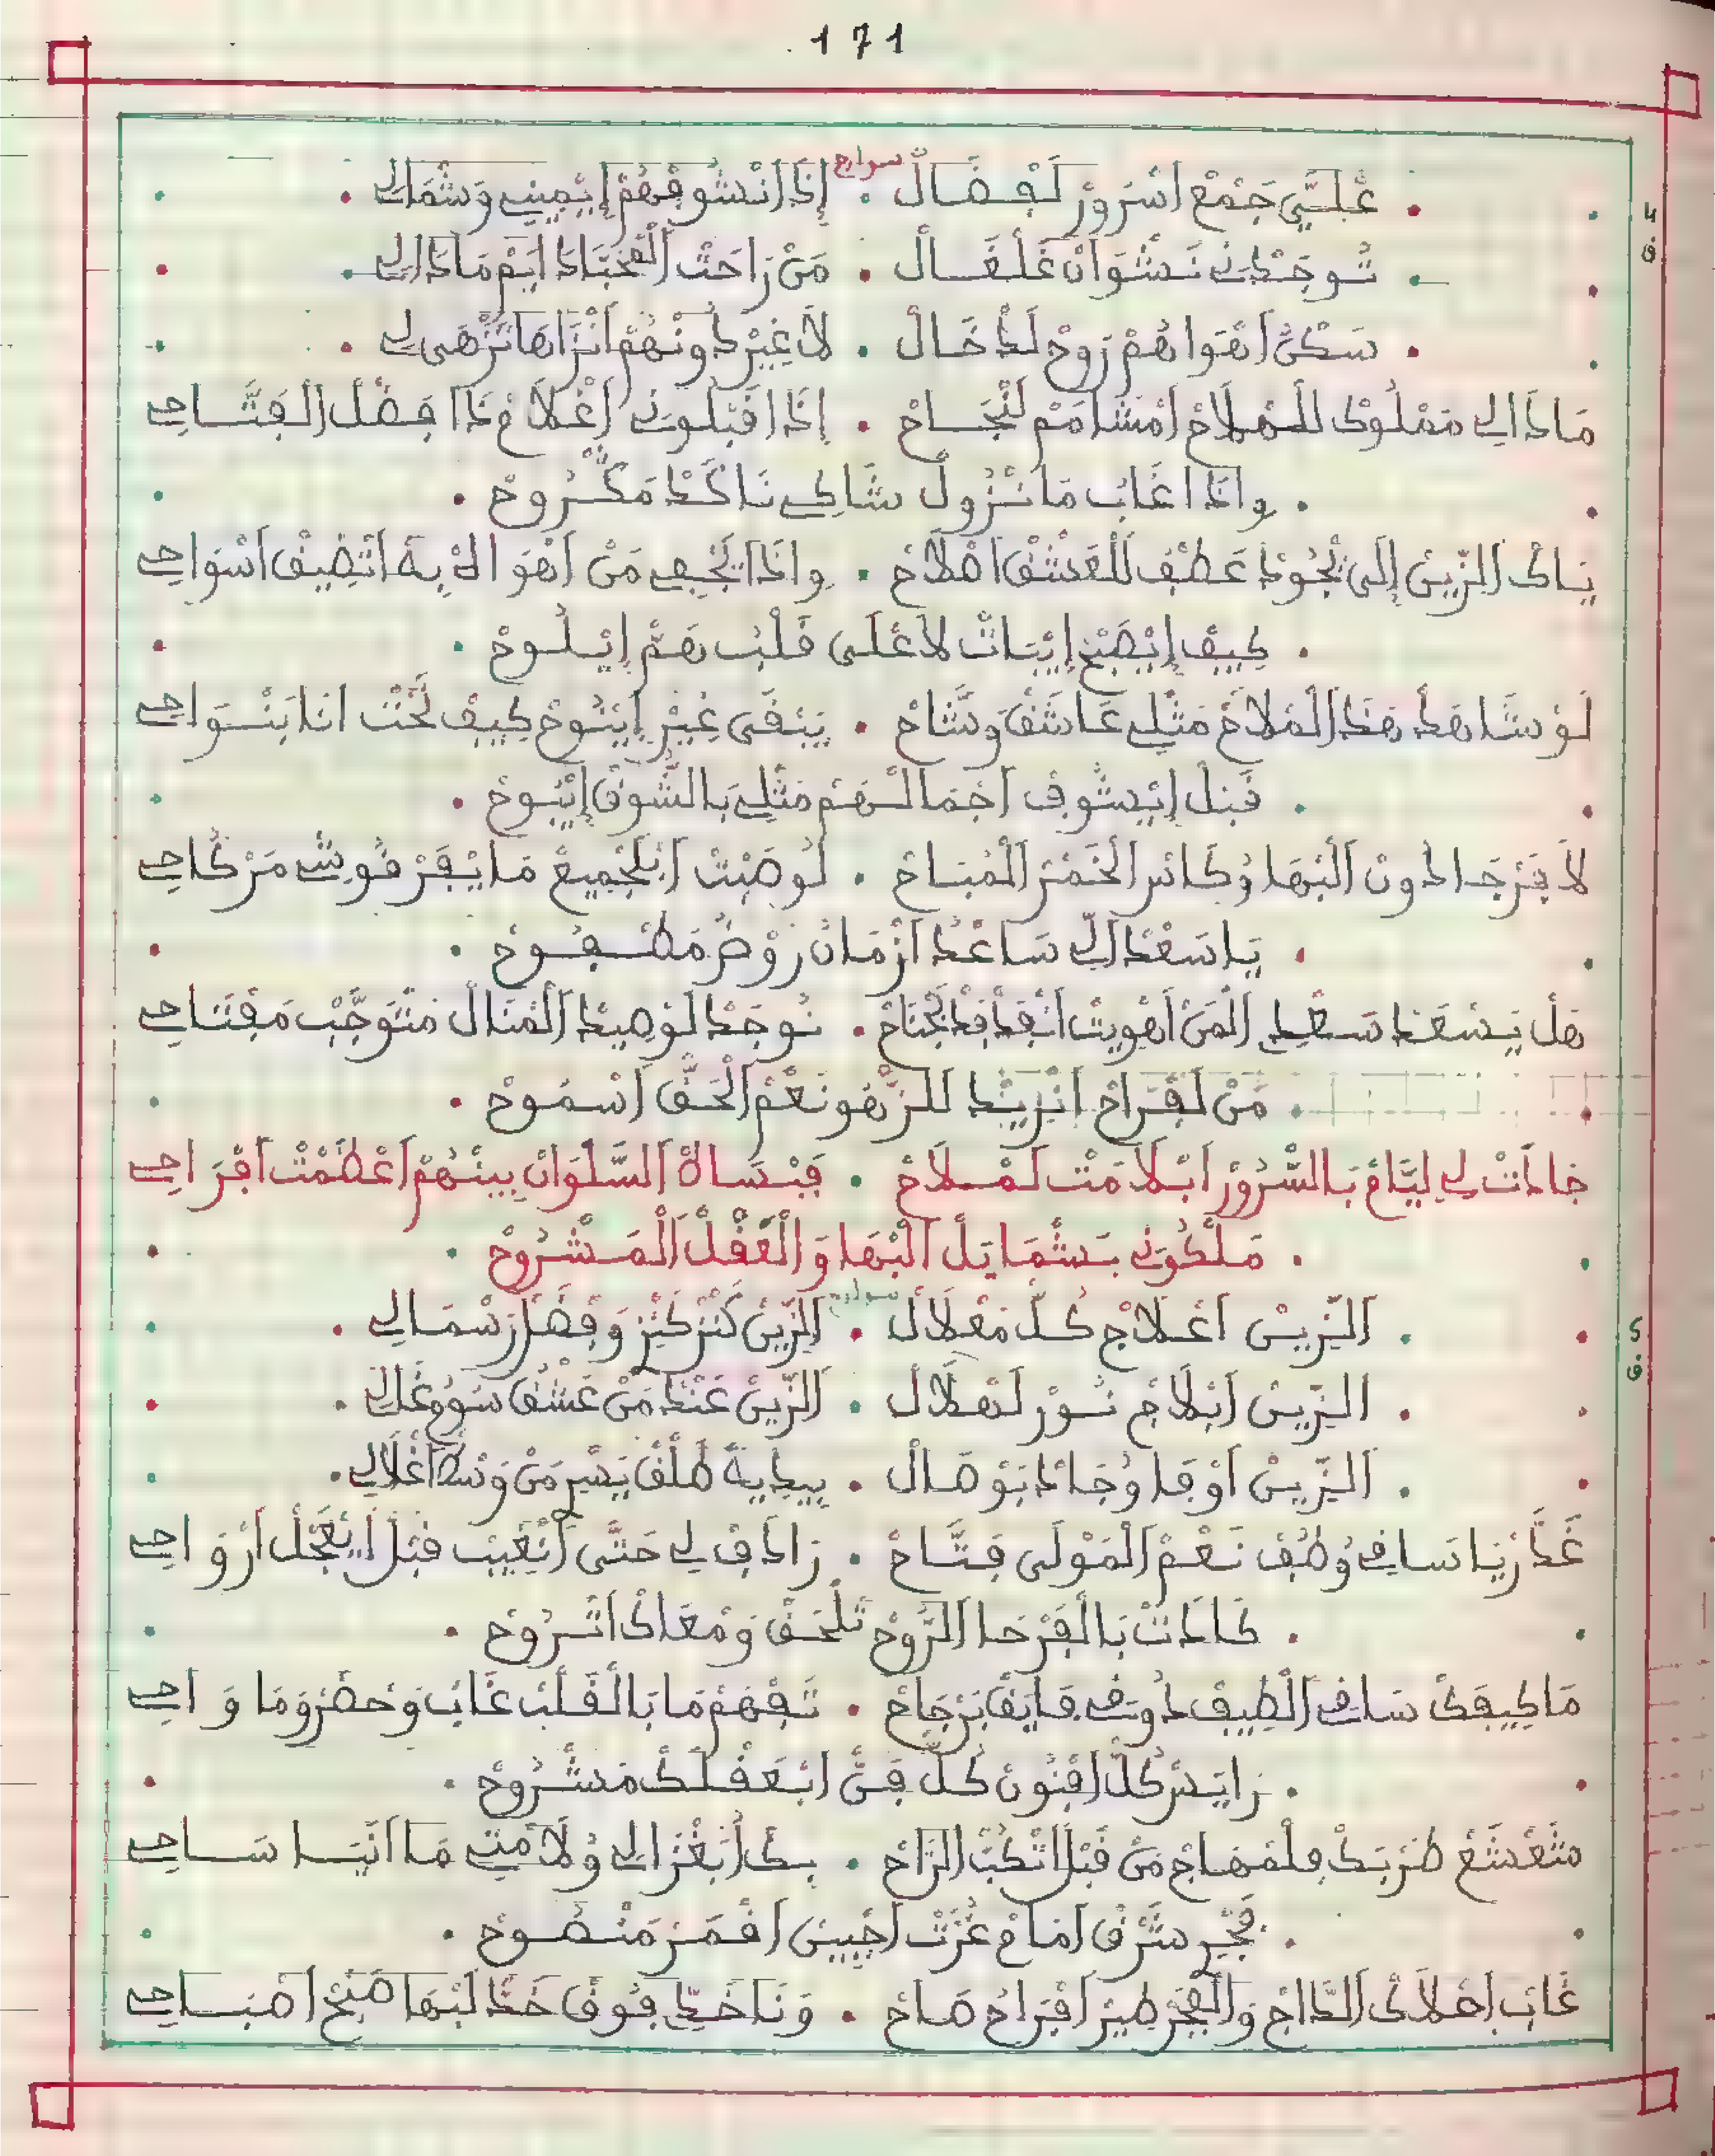 171
عْلِيَّ جَمْعْ اسْرُورْ لَفْضَالْ • إِذَا انْشُوفْهُمْ إِيْمِينِي وَشْمَالِي
تُوجَدْنِي نَشْوَانْ غَلْغَالْ • مَنْ رَاحْتْ الْمْحَبَّا دَايَمْ مَادَا الِي
سَكْنُ اهْوَاهُمْ رُوحْ لَدْخَالْ • لَا غِيرْ دُونْهُمْ انْزَاهَا تَزْهَى لِي
مَادَا الِي مَمْلُوكْ لَلْمْلَاحْ امْشَامَمْ لَنْجَاحْ • إِدَا اقْبْلُونِي اغْلَامْ دَا افْضَلْ الْفَتَّاحِي
وِإِدَا اغَابُ مَا نْزُولْ شَاكِي نَاكَدْ مَكْرُوحْ
يَاكْ الزِّينْ إِلَى يْجُودْ عَطْفْ لَلْعَشْقْ اصْلَاحْ • وِإِدَا يَجْفِي مَنْ اهْوَاهْ بِهْ اتْضِيقْ اسْوَاحِي
كِيفْ إِيْصَبْحْ إِيْبَاتْ لَا عْلَى قَلْبُ هَمّْ إِيْلُوحْ
لَوْ شَاهَدْ هَذْ الْمْلَاحْ مَثْلِي عَاشَقْ وَشَّاحْ • يَبْقَى غِيرْ إِيْنُوحْ كِيفْ نَحْتْ انَا بَنْوَاحِي
قَبْلْ إِيْشُوفْ اجْمَالْهُمْ مَثْلِي بَالشُّوقْ إِيْبُوحْ
لَا فَرْجَا دُونْ الْبْهَا وُكَاسْ الْخَمْرْ الْمْبَاحْ • لُو صَبْتْ ابْلَجْمِيعْ مَا يْفَرْقُوشْ مَرْكَاحِي
يَا سَعْدْ الِّي سَاعْدُ ازْمَانُ رَوْضُ مَطْفُوحْ
هَلْ يَسْعَدْ سَعْدِي الْمَنْ اهْوِيتْ • نُوجَدْ لَوْصِيدْ الْمْنَالْ مَتْوَجَّبْ مَفْتَاحِي
مَنْ لَفْرَاحْ انْزِيدْ لَلزَّهُو نَعْمْ الْحَقّْ اسْمُوحْ
جَادَتْ لِي لِيَّامْ بَالسُّرُورْ ابْلَامَتْ لَمْلَاحْ • فَبْسَاطْ السَّلْوَانْ بِينْهُمْ اعْظَمْتْ افْرَاحِي
مَلْكُونِي بَشْمَايَلْ الْبْهَا وَالْعَقْلْ الْمَشْرُوحْ
الزِّينْ اعْلَاجْ كُلّْ مَعْلَالْ • الزِّينْ كَنْزْ كَنِيزْ وَفْضَلْ رَسْمَالِي
الزِّينْ ابْلَاجْ نُورْ لَهْلَالْ • الزِّينْ عَنْدْ مَنْ عَشْقُ سَوُمْ غَالِي
الزِّينْ اوْفَا وُجَادْ بَوْصَالْ • بِيدِيهْ طْلَقْ يَسِيرْ مَنْ وَسْطْ اغْلَالِي
غَدَّرْ يَا سَاقِي وُطُفْ نَعْمْ الْمَوْلَى فَتَّاحْ • زَادْ فِ لِي حَتَّى انْغِيبْ قَبْلْ ايْعَجَّلْ ارْوَاحِي
كَادَتْ بَالْفَرْحَا الرُّوحْ تَلْحَقْ وَمْعَاكْ اتْرُوحْ
مَا كِيفَكْ سَاقِي الْطِيفْ دُوقِي فَايَقْ بَرْجَاحْ • تَفْهَمْ مَا بَالْقَلْبْ غَابْ وَحْضَرْ وُمَا وَاحِي
رَايَسْ كُلّْ افْنُونْ كُلّْ فَنّْ ابْعَقْلَكْ مَشْرُوحْ
مْشَعْشَعْ ضَرْبَكْ فِلْمْهَاجْ مَنْ قَبْلْ اتْكُبّْ الرَّاحْ • بِكْ ابْغْزَالِي وُلَامْتِي مَا انَيَا سَاحِي
فَجْرِ شَرْقْ امَامْ غُرَّتْ اجْبِينْ اقْمَرْ مَنْضُوحْ
غَابْ احْلَاكْ الدَّاجْ وَالْفْجَرْ طِيرْ افْرَاحُ صَاحْ • وَنَا خَدِّي فُوقْ خَدّْ لَبْهَا صَبَّحْ اصْبَاحِي